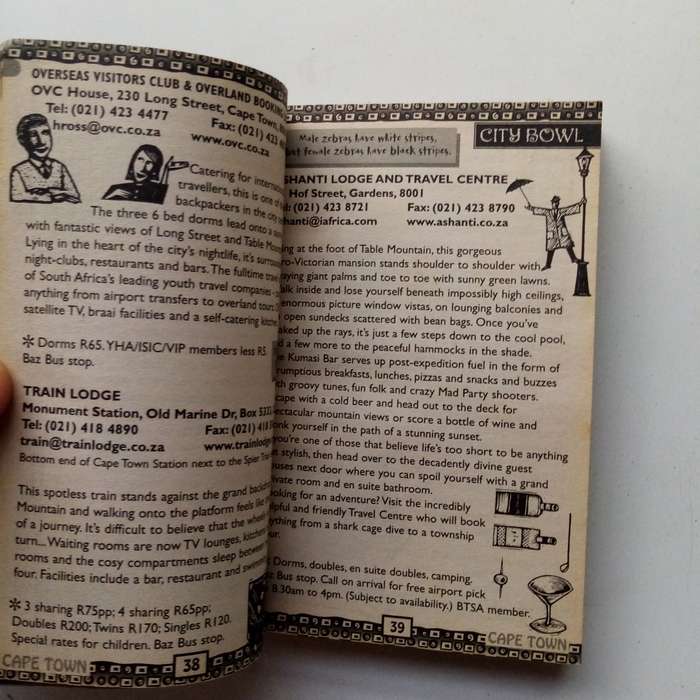 OVERSEAS VISITORS CLUB & OVERLAND
OVC House, 230 Long Street, Cape Town,
Tel: (021) 423 4477
Fax: (021)
hross@ovc.co.za
www.ovc.co.za
Catering for
travellers, this is one
backpackers in the city
The three 6 bed dorms lead onto a
with fantastic views of Long Street and Table
Lying in the heart of the city's nightlife, it's
night-clubs, restaurants and bars. The fulltime
of South Africa's leading youth travel companies
anything from airport transfers to overland
satellite TV, braai facilities and a self-catering
* Dorms R65. YHA/ISIC/VIP members less R5.
Baz Bus stop.
TRAIN LODGE
Monument Station, Old Marine Dr, Box
Tel: (021) 418 4890
Fax: (021)
train@trainlodge.co.za
Bottom end of Cape Town Station next to the Spier
This spotless train stands against the grand
Mountain and walking onto the platform feels like
of a journey. It's difficult to believe that the
turn... Waiting rooms are now TV lounges,
rooms and the cosy compartments sleep
four. Facilities include a bar, restaurant and
* 3 sharing R75pp; 4 sharing R65pp;
Doubles R200; Twins R170; Singles R120.
Special rates for children. Baz Bus stop.
CAPE TOWN
38
Male zebras have white stripes,
but female zebras have black stripes.
CITY BOWL
SHANTI LODGE AND TRAVEL CENTRE
Hof Street, Gardens, 8001
(021) 423 8721
Fax: (021) 423 8790
shanti@iafrica.com
www.ashanti.co.za
ing at the foot of Table Mountain, this gorgeous
ro-Victorian mansion stands shoulder to shoulder with
aying giant palms and toe to toe with sunny green lawns.
alk inside and lose yourself beneath impossibly high ceilings,
enormous picture window vistas, on lounging balconies and
open sundecks scattered with bean bags. Once you've
aked up the rays, it's just a few steps down to the cool pool,
d a few more to the peaceful hammocks in the shade.
e Kumasi Bar serves up post-expedition fuel in the form of
rumptious breakfasts, lunches, pizzas and snacks and buzzes
th groovy tunes, fun folk and crazy Mad Party shooters.
cape with a cold beer and head out to the deck for
ectacular mountain views or score a bottle of wine and
nk yourself in the path of a stunning sunset.
you're one of those that believe life's too short to be anything
t stylish, then head over to the decadently divine guest
uses next door where you can spoil yourself with a grand
ivate room and en suite bathroom.
oking for an adventure? Visit the incredibly
lpful and friendly Travel Centre who will book
ything from a shark cage dive to a township
ur.
Dorms, doubles, en suite doubles, camping.
Bus stop. Call on arrival for free airport pick
8.30am to 4pm. (Subject to availability.) BTSA member.
39
CAPE TOWN